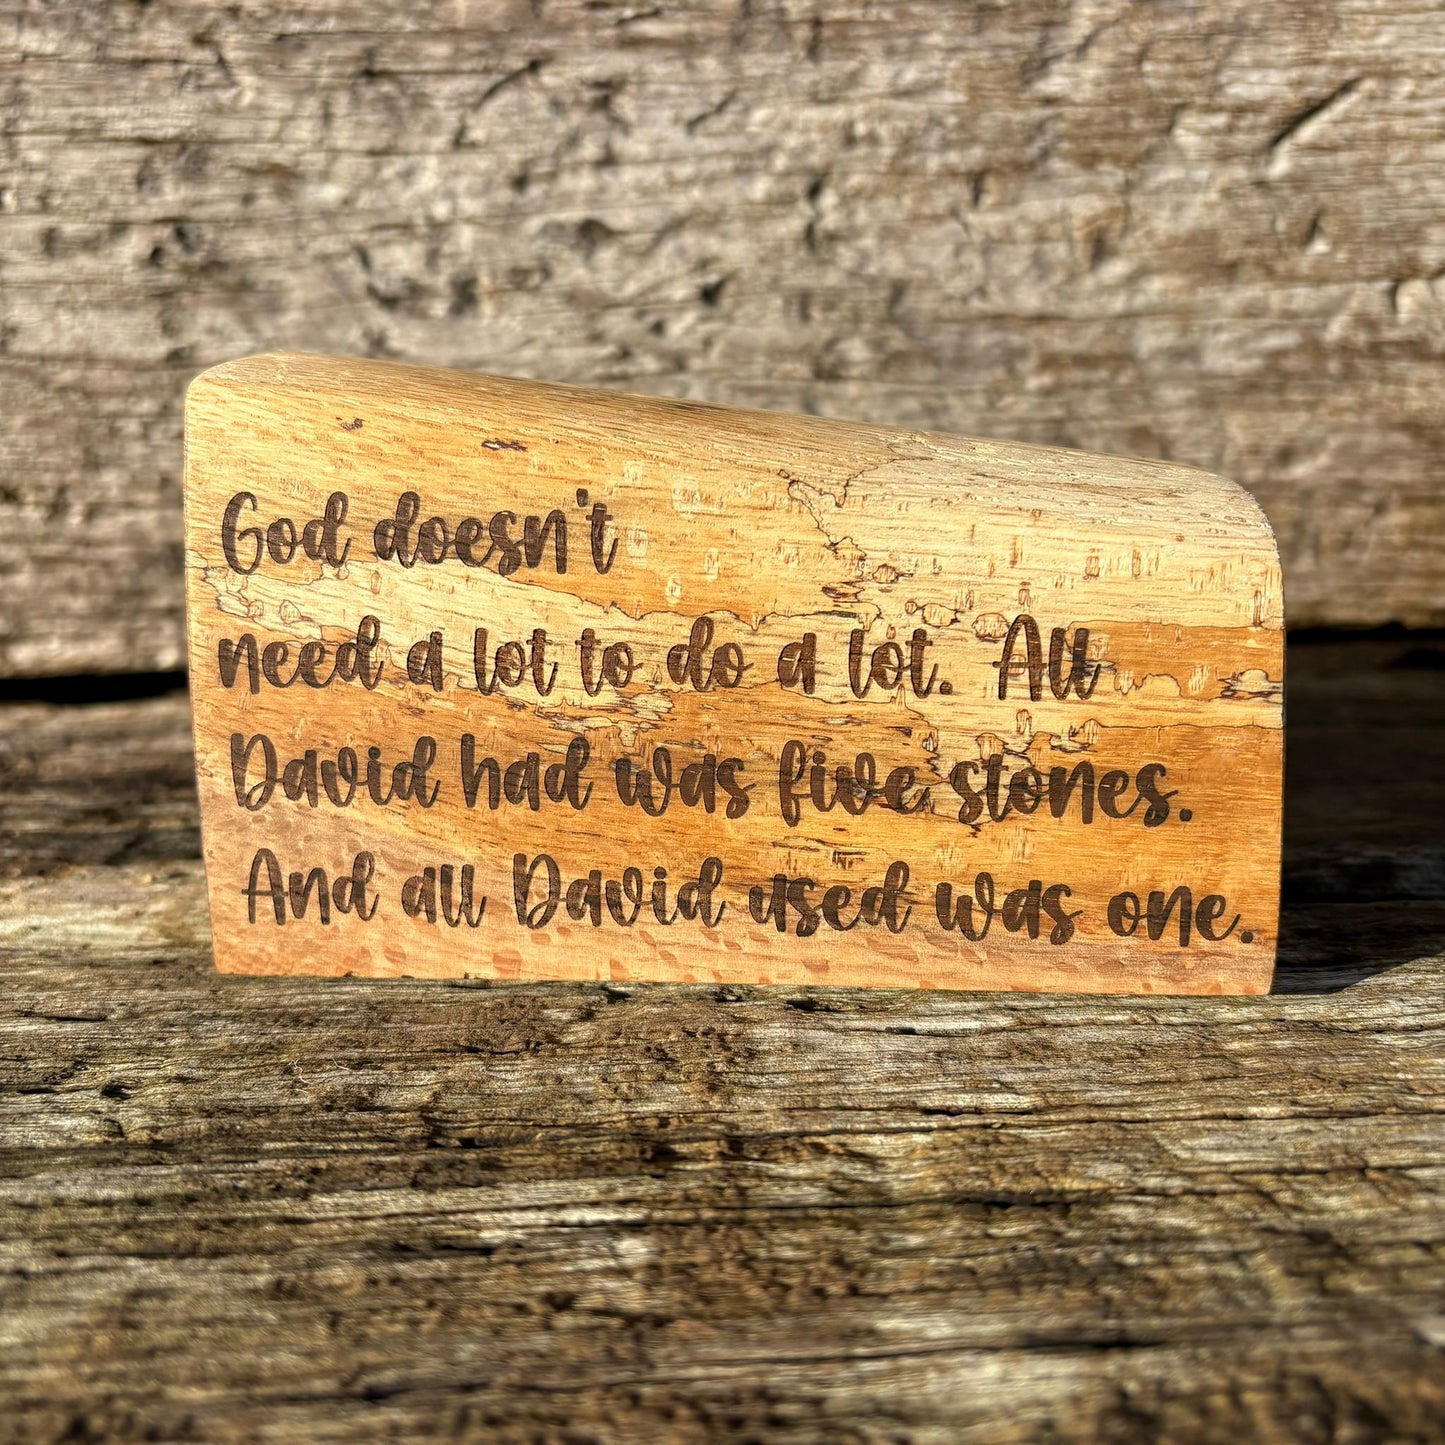 God doesn't
need a lot to do a lot. All
David had was five stones.
And all David used was one.